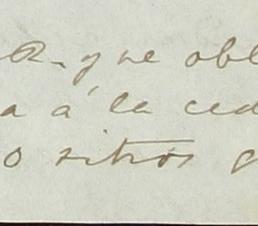 R. que obl
a á la ced
o sitios q